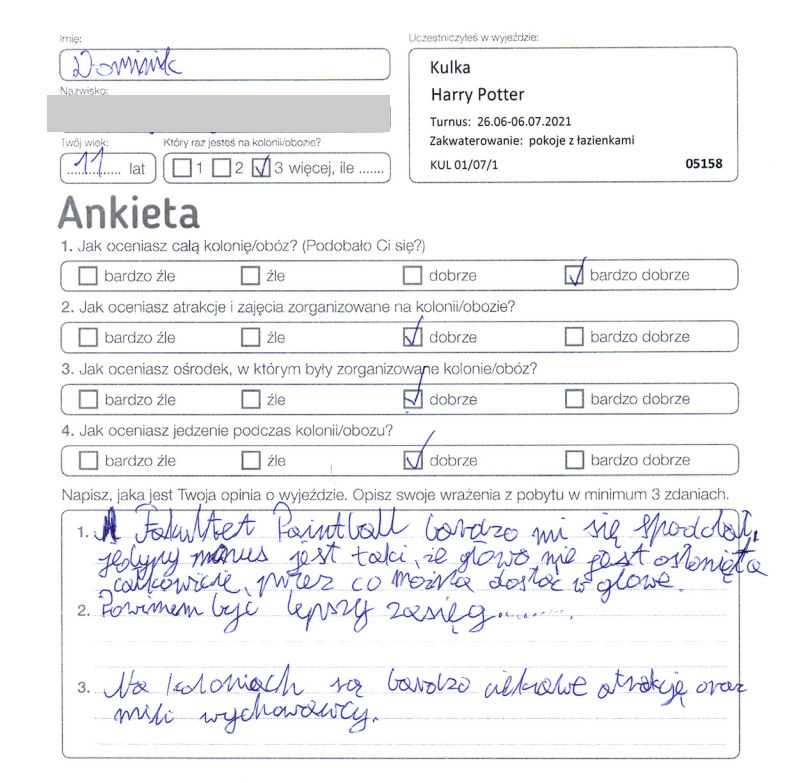 Imię:
Dominik
Uczestniczyłeś w wyjeździe:
Kulka
Harry Potter
Turnus: 26.06-06.07.2021
Zakwaterowanie: pokoje z łazienkami
KUL 01/07/1 05158
Nazwisko:
Twój wiek: Który raz jesteś na kolonii/obozie?
11 lat 1 2 3 więcej, ile .......
Ankieta
1. Jak oceniasz całą kolonię/obóz? (Podobało Ci się?)
bardzo źle źle dobrze bardzo dobrze
2. Jak oceniasz atrakcje i zajęcia zorganizowane na kolonii/obozie?
bardzo źle źle dobrze bardzo dobrze
3. Jak oceniasz ośrodek, w którym były zorganizowane kolonie/obóz?
bardzo źle źle dobrze bardzo dobrze
4. Jak oceniasz jedzenie podczas kolonii/obozu?
bardzo źle źle dobrze bardzo dobrze
Napisz, jaka jest Twoja opinia o wyjeździe. Opisz swoje wrażenia z pobytu w minimum 3 zdaniach.
1. Fakultet Paintball bardzo mi się spodobał,
jedyny minus jest taki, że głowa nie jest osłonięta
całkowicie, przez co można dostać w głowe.
2. Powinien być lepszy zasięg..........
3. Na koloniach są bardzo ciekawe atrakcję oraz
mili wychowawcy.